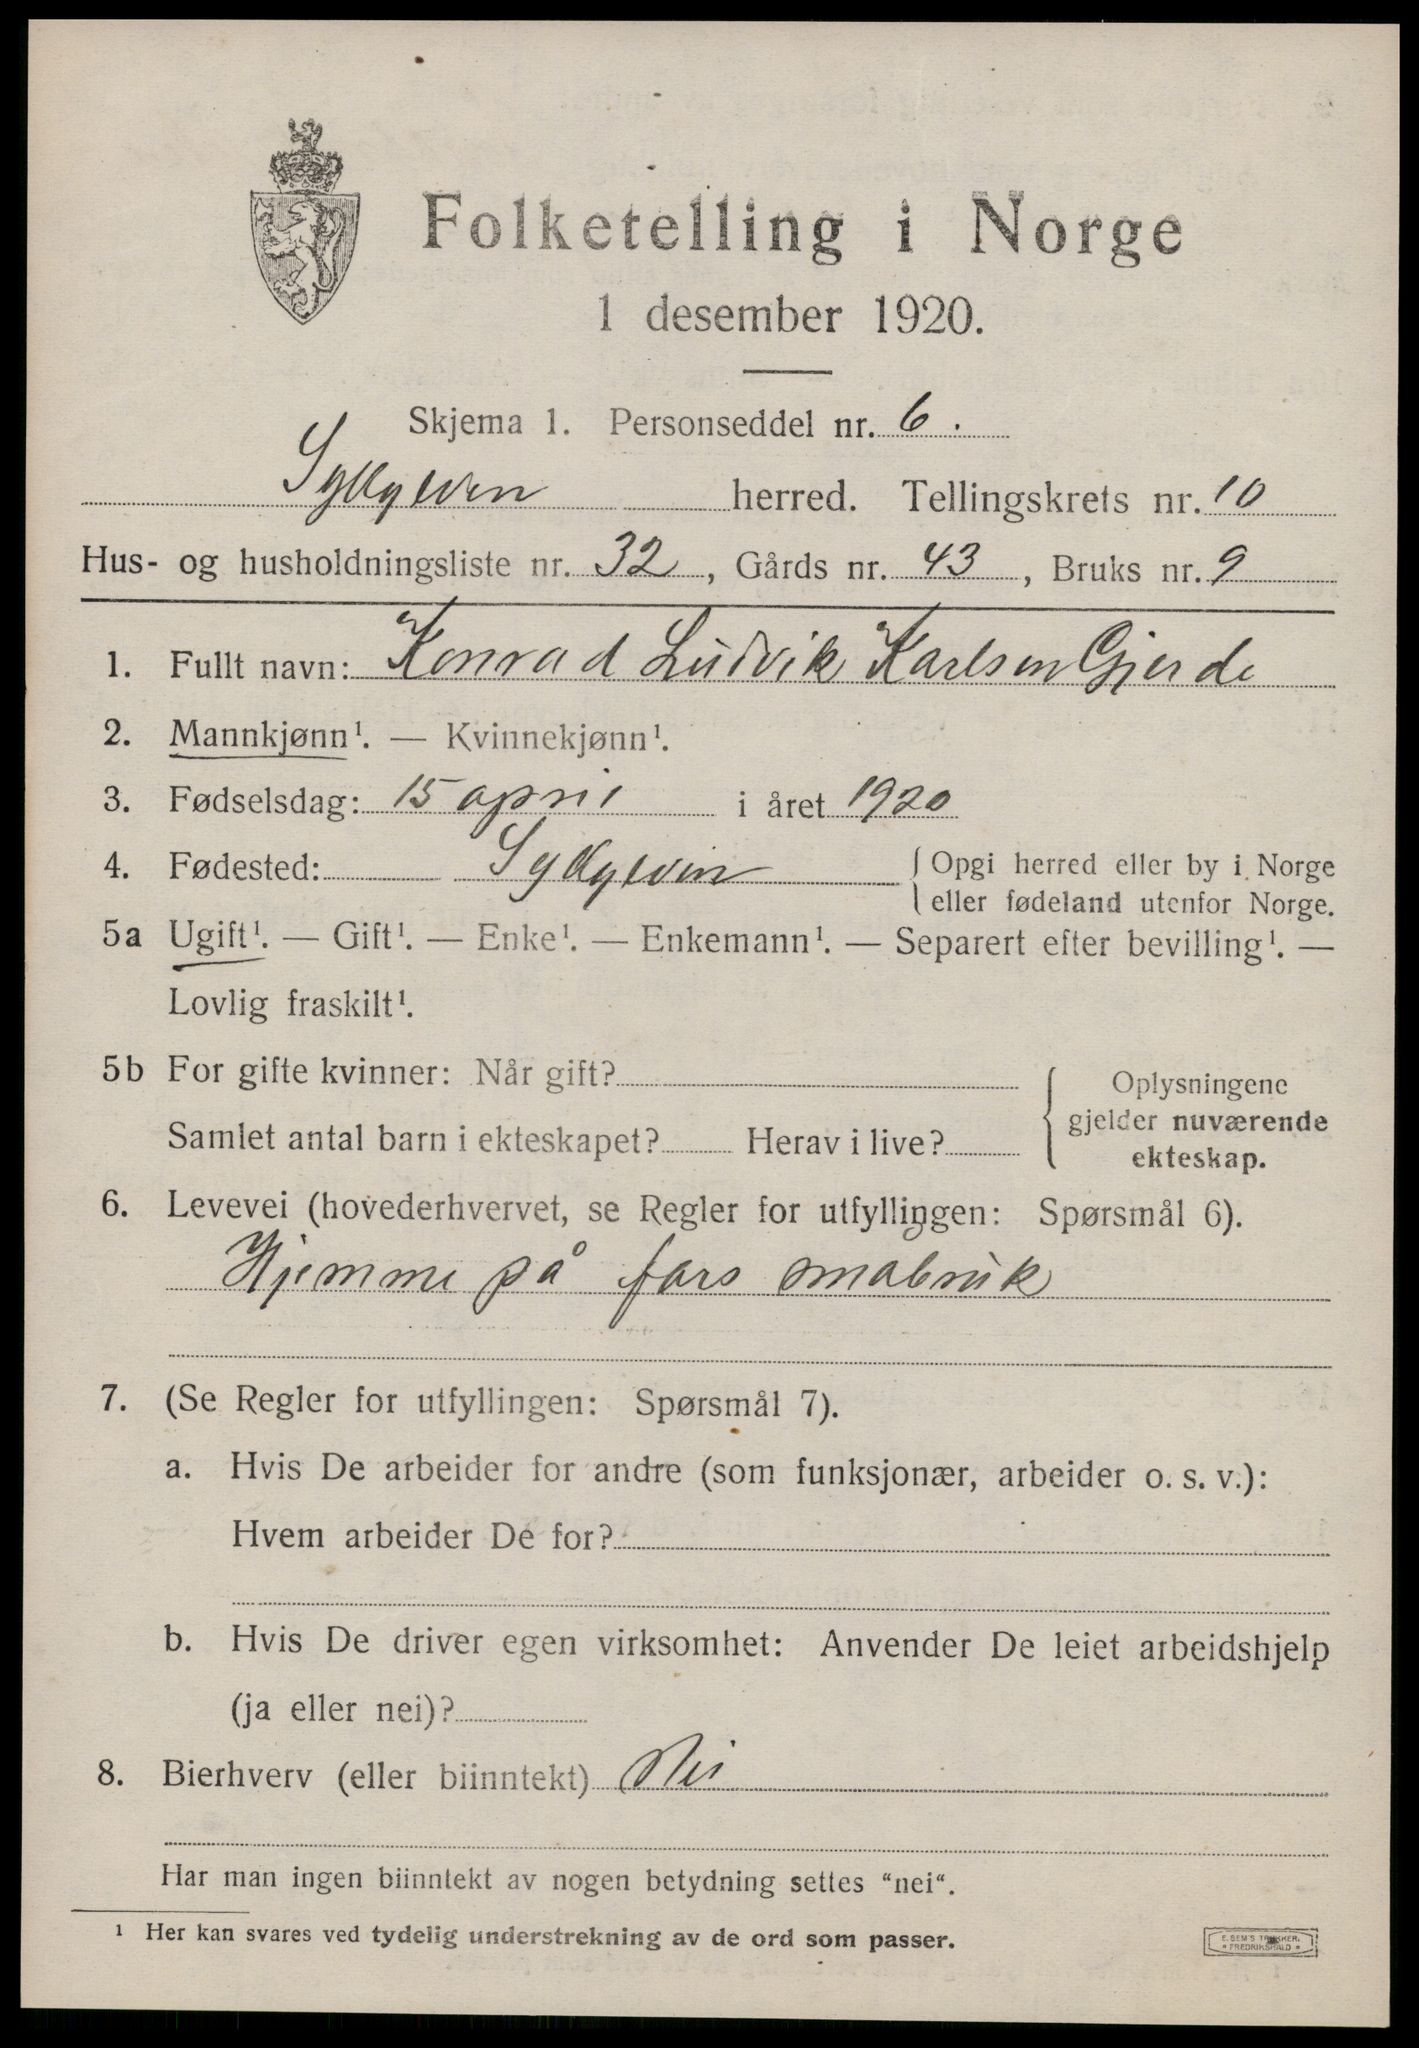 Folketelling i Norge
1 desember 1920.
Skjema 1. Personseddel nr. 6.
Sykkylven herred. Tellingskrets nr. 10
Hus- og husholdningsliste nr. 32, Gårds nr. 43, Bruks nr. 9
1. Fullt navn: Konrad Ludvik Karlsen Gjerde
2. Mannkjønn¹. — Kvinnekjønn¹.
3. Fødselsdag: 15 april i året 1920
4. Fødested: Sykkylven { Opgi herred eller by i Norge
eller fødeland utenfor Norge.
5a Ugift¹. — Gift¹. — Enke¹. — Enkemann¹. — Separert efter bevilling¹. —
Lovlig fraskilt¹.
5b For gifte kvinner: Når gift?
Samlet antal barn i ekteskapet? Herav i live?
Oplysningene
gjelder nuværende
ekteskap.
6. Levevei (hovederhvervet, se Regler for utfyllingen: Spørsmål 6).
Hjemme på fars småbruk
7. (Se Regler for utfyllingen: Spørsmål 7).
a. Hvis De arbeider for andre (som funksjonær, arbeider o. s. v.):
Hvem arbeider De for?
b. Hvis De driver egen virksomhet: Anvender De leiet arbeidshjelp
(ja eller nei)?
8. Bierhverv (eller biinntekt) Nei
Har man ingen biinntekt av nogen betydning settes “nei“.
¹ Her kan svares ved tydelig understrekning av de ord som passer.
E. SEM'S TRYKKERI.
* FREDRIKSHALD *